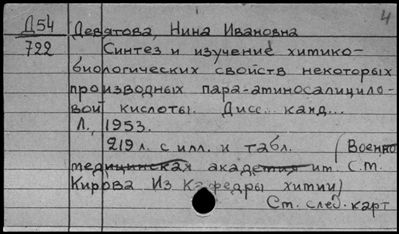 4
Д54 Девятова, Нина Ивановна
722 Синтез и изучение химико-
биологических свойств некоторых
производных пара-аминосалицило-
вой кислоты. Дисс... канд...
Л., 1953.
219 л. с илл. и табл. (Военно
медицинская академия им. С.М.
Кирова Из Кафедры химии)
См. след. карт